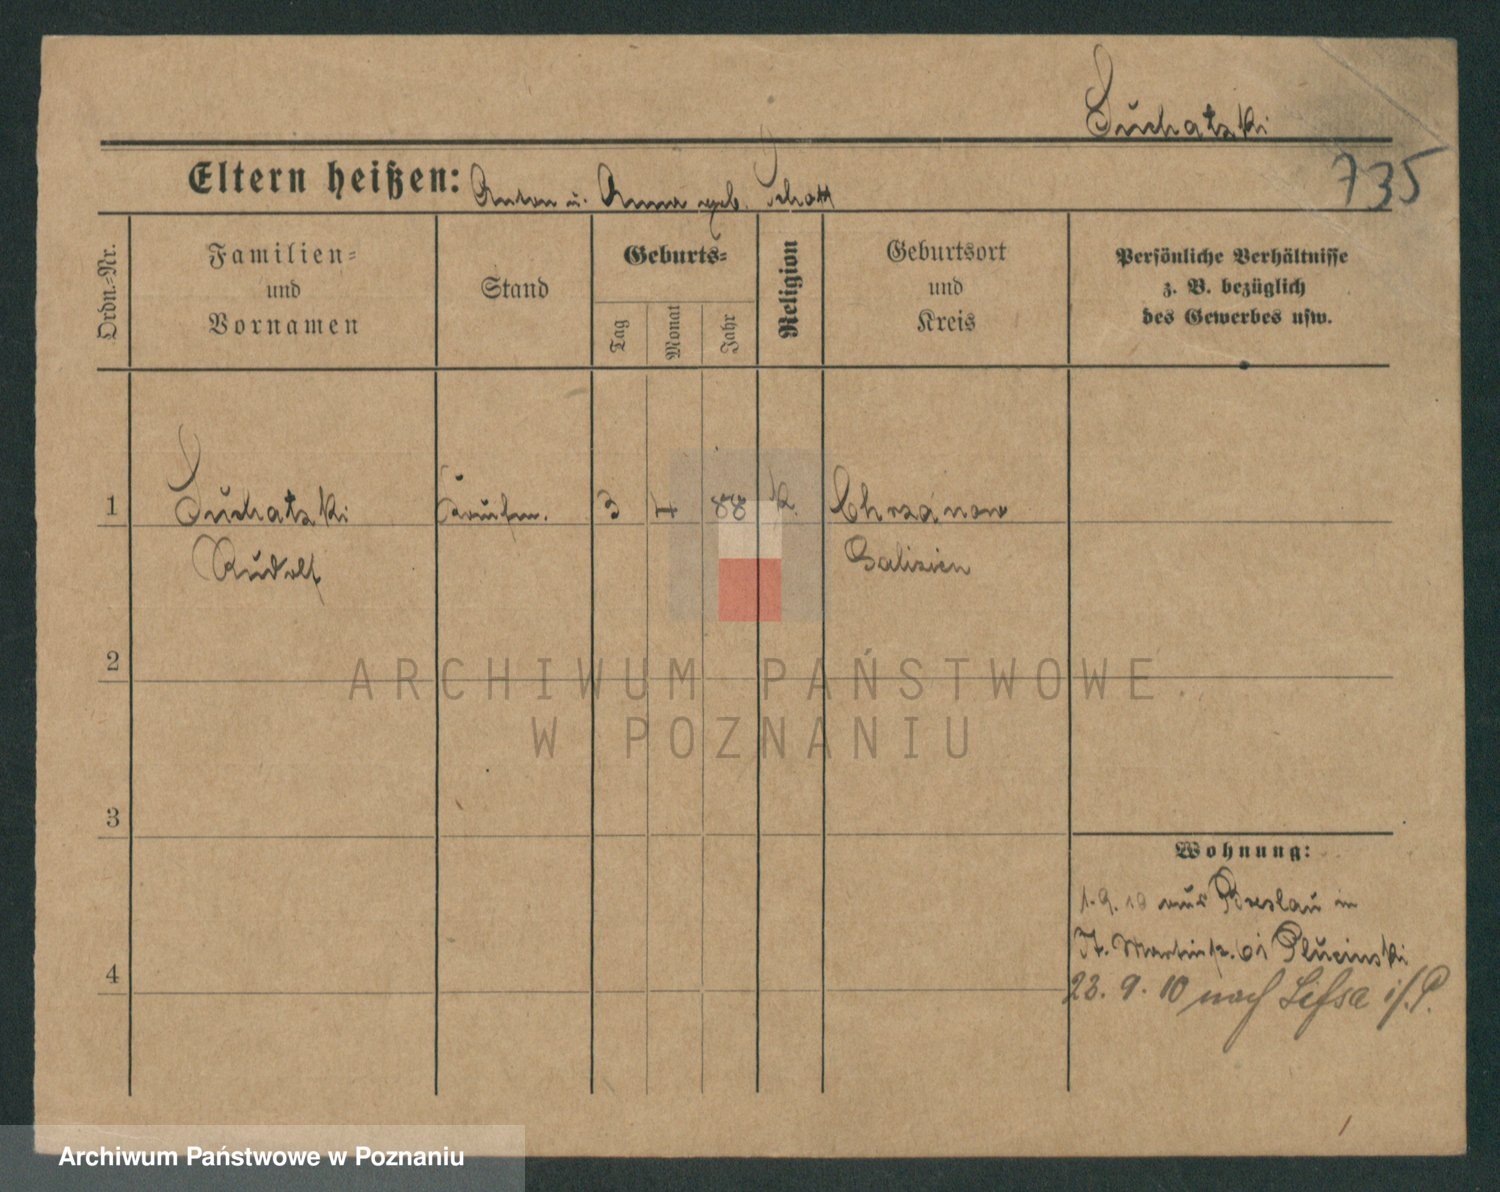 Suchatzki
735
Eltern heißen: Anton u. Anna geb. Schott
Ordn.-Nr.
Familien-
und
Vornamen
Stand
Geburts-
Tag
Monat
Jahr
Religion
Geburtsort
und
Kreis
Persönliche Verhältnisse
z. B. bezüglich
des Gewerbes usw.
1
Suchatzki
Rudolf
Kaufm.
3
4
88
k.
Chrzanow
Galizien
2
ARCHIWUM PAŃSTWOWE
W POZNANIU
3
Wohnung:
1.9.10 aus Breslau in
St. Martinstr. 61 Plucinski
4
23. 9. 10 nach Lissa i/P.
Archiwum Państwowe w Poznaniu